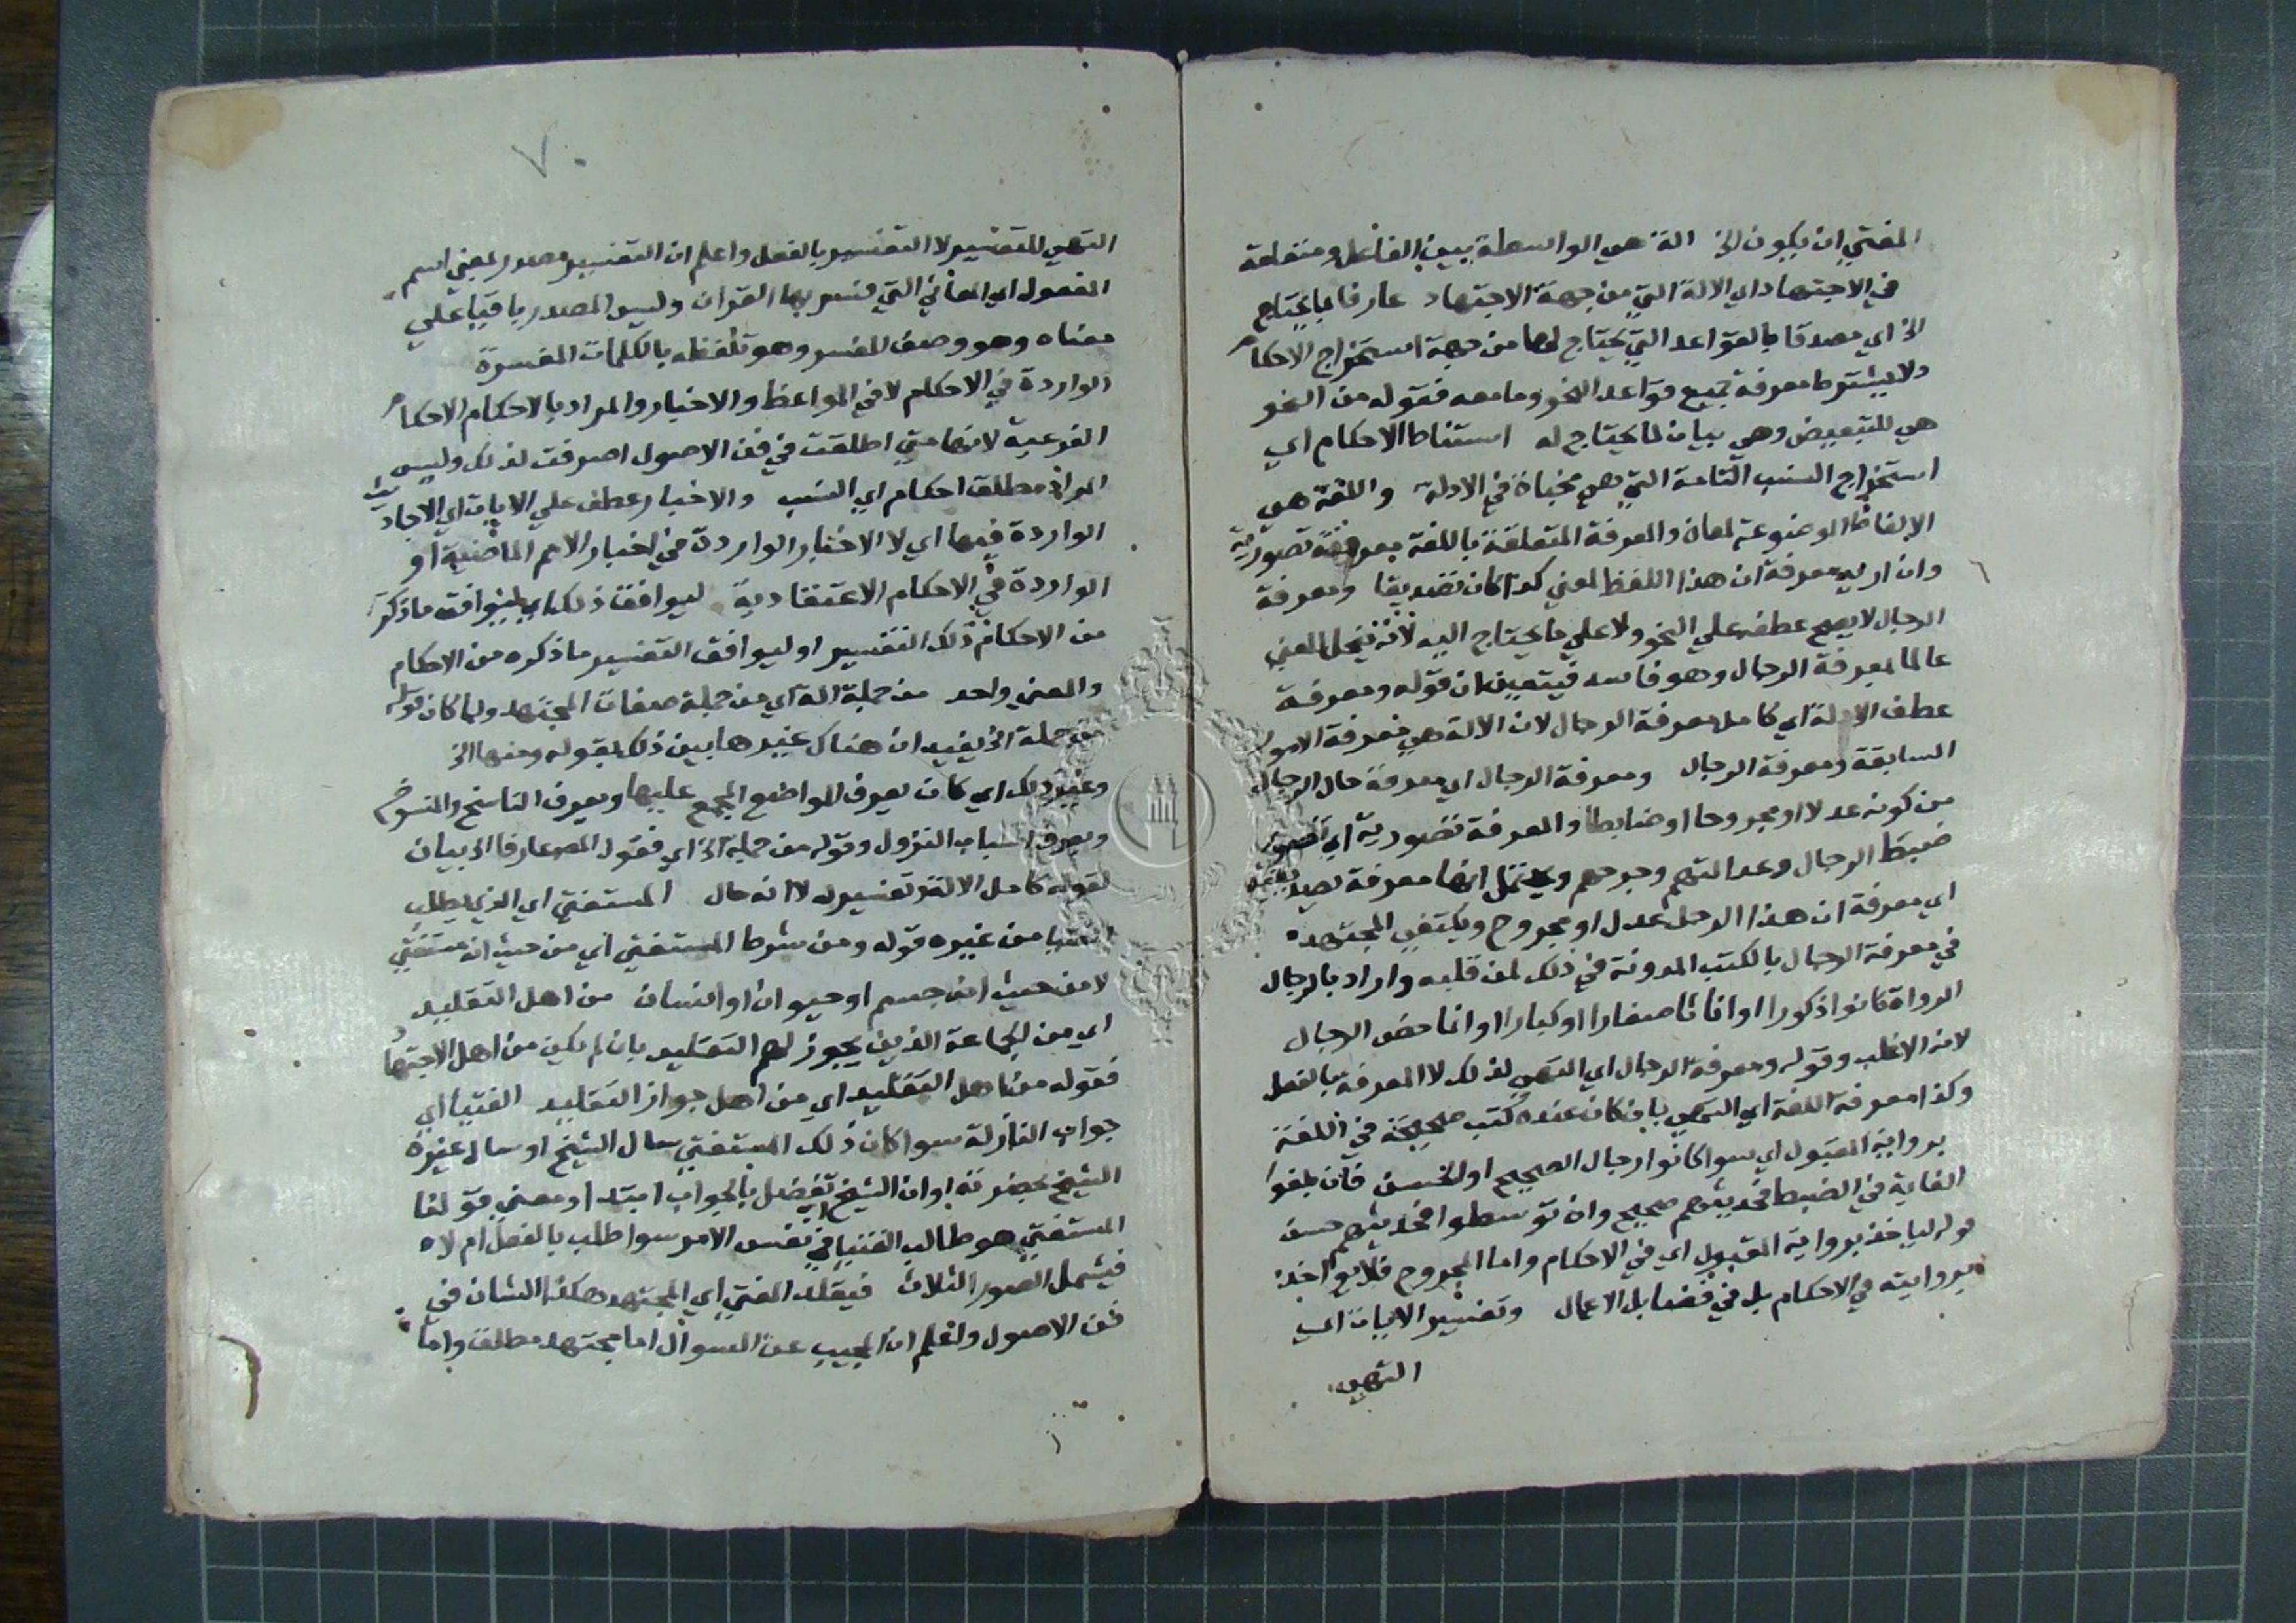 المفتي ان يكون الخ الة هي الواسطة بين الفاعل ومنفعلة
في الاجتهاد اي الالة التي من جهة الاجتهاد عارفا بما يحتاج
الخ اي مصدقا بالقواعد التي يحتاج لها من جهة استخراج الاحكام
ولا يشترط معرفة جميع قواعد النحو وما معه فقوله من النحو
هي للتبعيض وهي بيان لما يحتاج له استنباط الاحكام اي
استخراج النسب التامة التي هي مخباة في الادلة واللغة هي
الالفاظ الموضوعة لمعان والمعرفة المتعلقة باللغة معرفة تصورية
وان اريد معرفة ان هذا اللفظ لمعني كذا كان تصديقا ومعرفة
الرجال لا يصح عطفه علي النحو ولا علي ما يحتاج اليه لانه ينحل المعني
عالما بمعرفة الرجال وهو فاسد فيتعين ان قوله ومعرفة
عطف الالة اي كامل معرفة الرجال لان الالة هي معرفة الامور
السابقة ومعرفة الرجال ومعرفة الرجال اي معرفة حال الرجال
من كونه عدلا او مجروحا او ضابطا والمعرفة تصورية اي تصور
ضبط الرجال وعدالتهم وجرحهم ويحتمل انها معرفة تصديقية
اي معرفة ان هذا الرجل عدل او مجروح ويكتفي المجتهد
في معرفة الرجال بالكتب المدونة في ذلك لمن قلبه واراد بالرجال
الرواة كانوا ذكورا او اناثا صغارا او كبارا وانما خص الرجال
لانه الاغلب وقوله ومعرفة الرجال اي التهيي لذلك لا المعرفة بالفعل
وكذا معرفة اللغة اي التهيي بان كان عنده كتب صحيحة في اللغة
برواية المقبول اي سوا كانوا رجال الصحيح او الحسن فان بلغوا
الغاية في الضبط فحديثهم صحيح وان توسطوا فحديثهم حسن
قوله لياخذ برواية المقبول اي في الاحكام واما المجروح فلا يواخذ
بروايته في الاحكام بل في فضايل الاعمال وتفسير الايات اي
التهيي
٧٠
التهيي للتفسير لا التفسير بالفعل واعلم ان التفسير مصدر بمعني اسم
المفعول اي المعاني التي فسر بها القران وليس المصدر باقيا علي
معناه وهو وصف المفسر وهو تلفظه بالكلمات المفسرة
الواردة في الاحكام لا في المواعظ والاخبار والمراد بالاحكام الاحكام
الفرعية لانها متي اطلقت في فن الاصول انصرفت لذلك وليس
المراد مطلق احكام اي النسب والاخبار عطف علي الايات اي الاحاديث
الواردة فيها اي لا الاخبار الواردة في اخبار الامم الماضية او
الواردة في الاحكام الاعتقادية ليوافق ذلك اي ليوافق ما ذكر
من الاحكام ذلك التفسير او ليوافق التفسير ما ذكره من الاحكام
والمعني واحد من جملة الة اي من جملة صفات المجتهد ولما كان قوله
من جملة الخ يفيد ان هناك غيرها بين ذلك بقوله ومنها الخ
وغير ذلك اي كان يعرف المواضع المجمع عليها ويعرف الناسخ والمنسوخ
ويعرف اسباب النزول وقوله من جملة الخ اي فقول المص عارفا الخ بيان
لقوله كامل الالة وتفسير له لا انه حال المستفتي اي الذي يطلب
الفتيا من غيره قوله ومن شرط المستفتي اي من حيث انه مستفتي
لا من حيث انه جسم او حيوان او انسان من اهل التقليد
اي من الجماعة الذين يجوز لهم التقليد بان لم يكن من اهل الاجتهاد
فقوله من اهل التقليد اي من اهل جواز التقليد الفتيا اي
جواب النازلة سوا كان ذلك المستفتي سال الشيخ او سال غيره
الشيخ بحضرته او ان الشيخ تفضل بالجواب ابتدا ومعني قولنا
المستفتي هو طالب الفتيا في نفس الامر سوا طلب بالفعل ام لا
فيشمل الصور الثلاث فيقلد المفتي اي المجتهد هكذا الشان في
فن الاصول واعلم ان المجيب عن السوال اما مجتهد مطلق واما